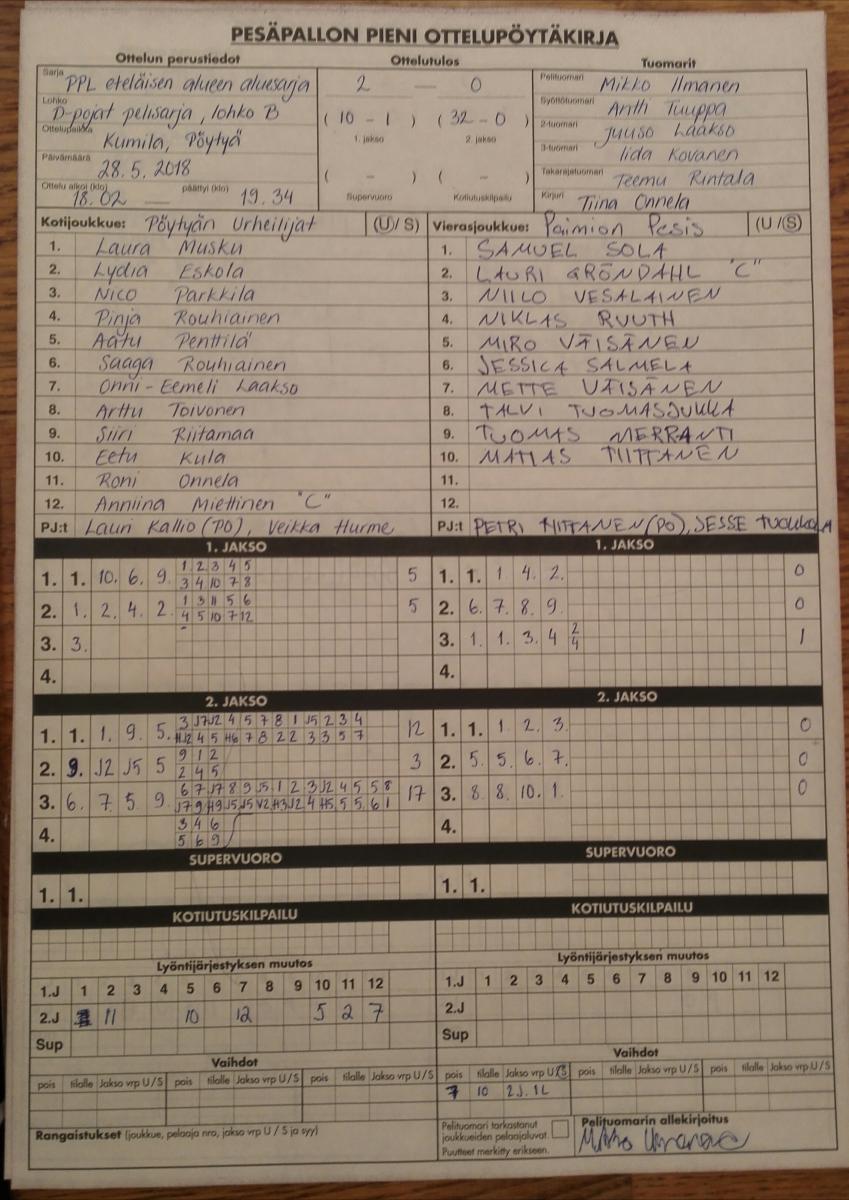 PESÄPALLON PIENI OTTELUPÖYTÄKIRJA
Ottelun perustiedot Ottelutulos Tuomarit
Sarja PPL eteläisen alueen aluesarja
Lohko D-pojat pelisarja, lohko B
Ottelupaikka Kumila, Pöytyä
Päivämäärä 28.5.2018
Ottelu alkoi (klo) 18.02 — päättyi (klo) 19.34
2 — 0
(10 - 1) (32 - 0)
1. jakso 2. jakso
( - ) ( - )
Supervuoro Kotiutuskilpailu
Pelituomari Mikko Ilmanen
Syöttötuomari Antti Tuuppa
2-tuomari Juuso Laakso
3-tuomari Iida Kovanen
Takarajatuomari Teemu Rintala
Kirjuri Tiina Onnela
Kotijoukkue: Pöytyän Urheilijat (U/S)
1. Laura Musku
2. Lydia Eskola
3. Nico Parkkila
4. Pinja Rouhiainen
5. Aatu Penttilä
6. Saaga Rouhiainen
7. Onni-Eemeli Laakso
8. Arttu Toivonen
9. Siiri Riitamaa
10. Eetu Kula
11. Roni Onnela
12. Anniina Miettinen "C"
PJ:t Lauri Kallio (PO), Veikka Hurme
Vierasjoukkue: Paimion Pesis (U/S)
1. SAMUEL SOLA
2. LAURI GRÖNDAHL "C"
3. NIILO VESALAINEN
4. NIKLAS RUUTH
5. MIRO VÄISÄNEN
6. JESSICA SALMELA
7. METTE VÄISÄNEN
8. TALVI TUOMASJUKKA
9. TUOMAS MERRANTI
10. MATIAS TIITTANEN
11.
12.
PJ:t PETRI TIITTANEN (PO), JESSE
1. JAKSO
1. 1. 10. 6. 9. 1 2 3 4 5 5
3 4 10 7 8
2. 1. 2. 4. 2. 1 3 11 5 6 5
4 5 10 7 12
3. 3.
4.
1. JAKSO
1. 1. 1 4. 2. 0
2. 6. 7. 8. 9. 0
3. 1. 1. 3. 4 2 1
4
4.
2. JAKSO
1. 1. 1. 9. 5. 12
2. 9. J2 J5 5 9 1 2 3
2 4 5
3. 6. 7. 5 9. 17
4. 3 4 6
5 6 9
2. JAKSO
1. 1. 1 2. 3. 0
2. 5. 5. 6. 7. 0
3. 8. 8. 10. 1. 0
4.
SUPERVUORO
1. 1.
SUPERVUORO
1. 1.
KOTIUTUSKILPAILU
KOTIUTUSKILPAILU
Lyöntijärjestyksen muutos
1.J 1 2 3 4 5 6 7 8 9 10 11 12
2.J 11 10 12 5 2 7
Sup
Lyöntijärjestyksen muutos
1.J 1 2 3 4 5 6 7 8 9 10 11 12
2.J
Sup
Vaihdot
pois tilalle Jakso vrp U/S pois tilalle Jakso vrp U/S pois tilalle Jakso vrp U/S
Vaihdot
pois tilalle Jakso vrp U/S pois tilalle Jakso vrp U/S pois tilalle Jakso vrp U/S
7 10 2J. 1L
Rangaistukset (joukkue, pelaaja nro, jakso vrp U / S ja syy)
Pelituomari tarkastanut
joukkueiden pelaajaluvat.
Puutteet merkitty erikseen.
Pelituomarin allekirjoitus